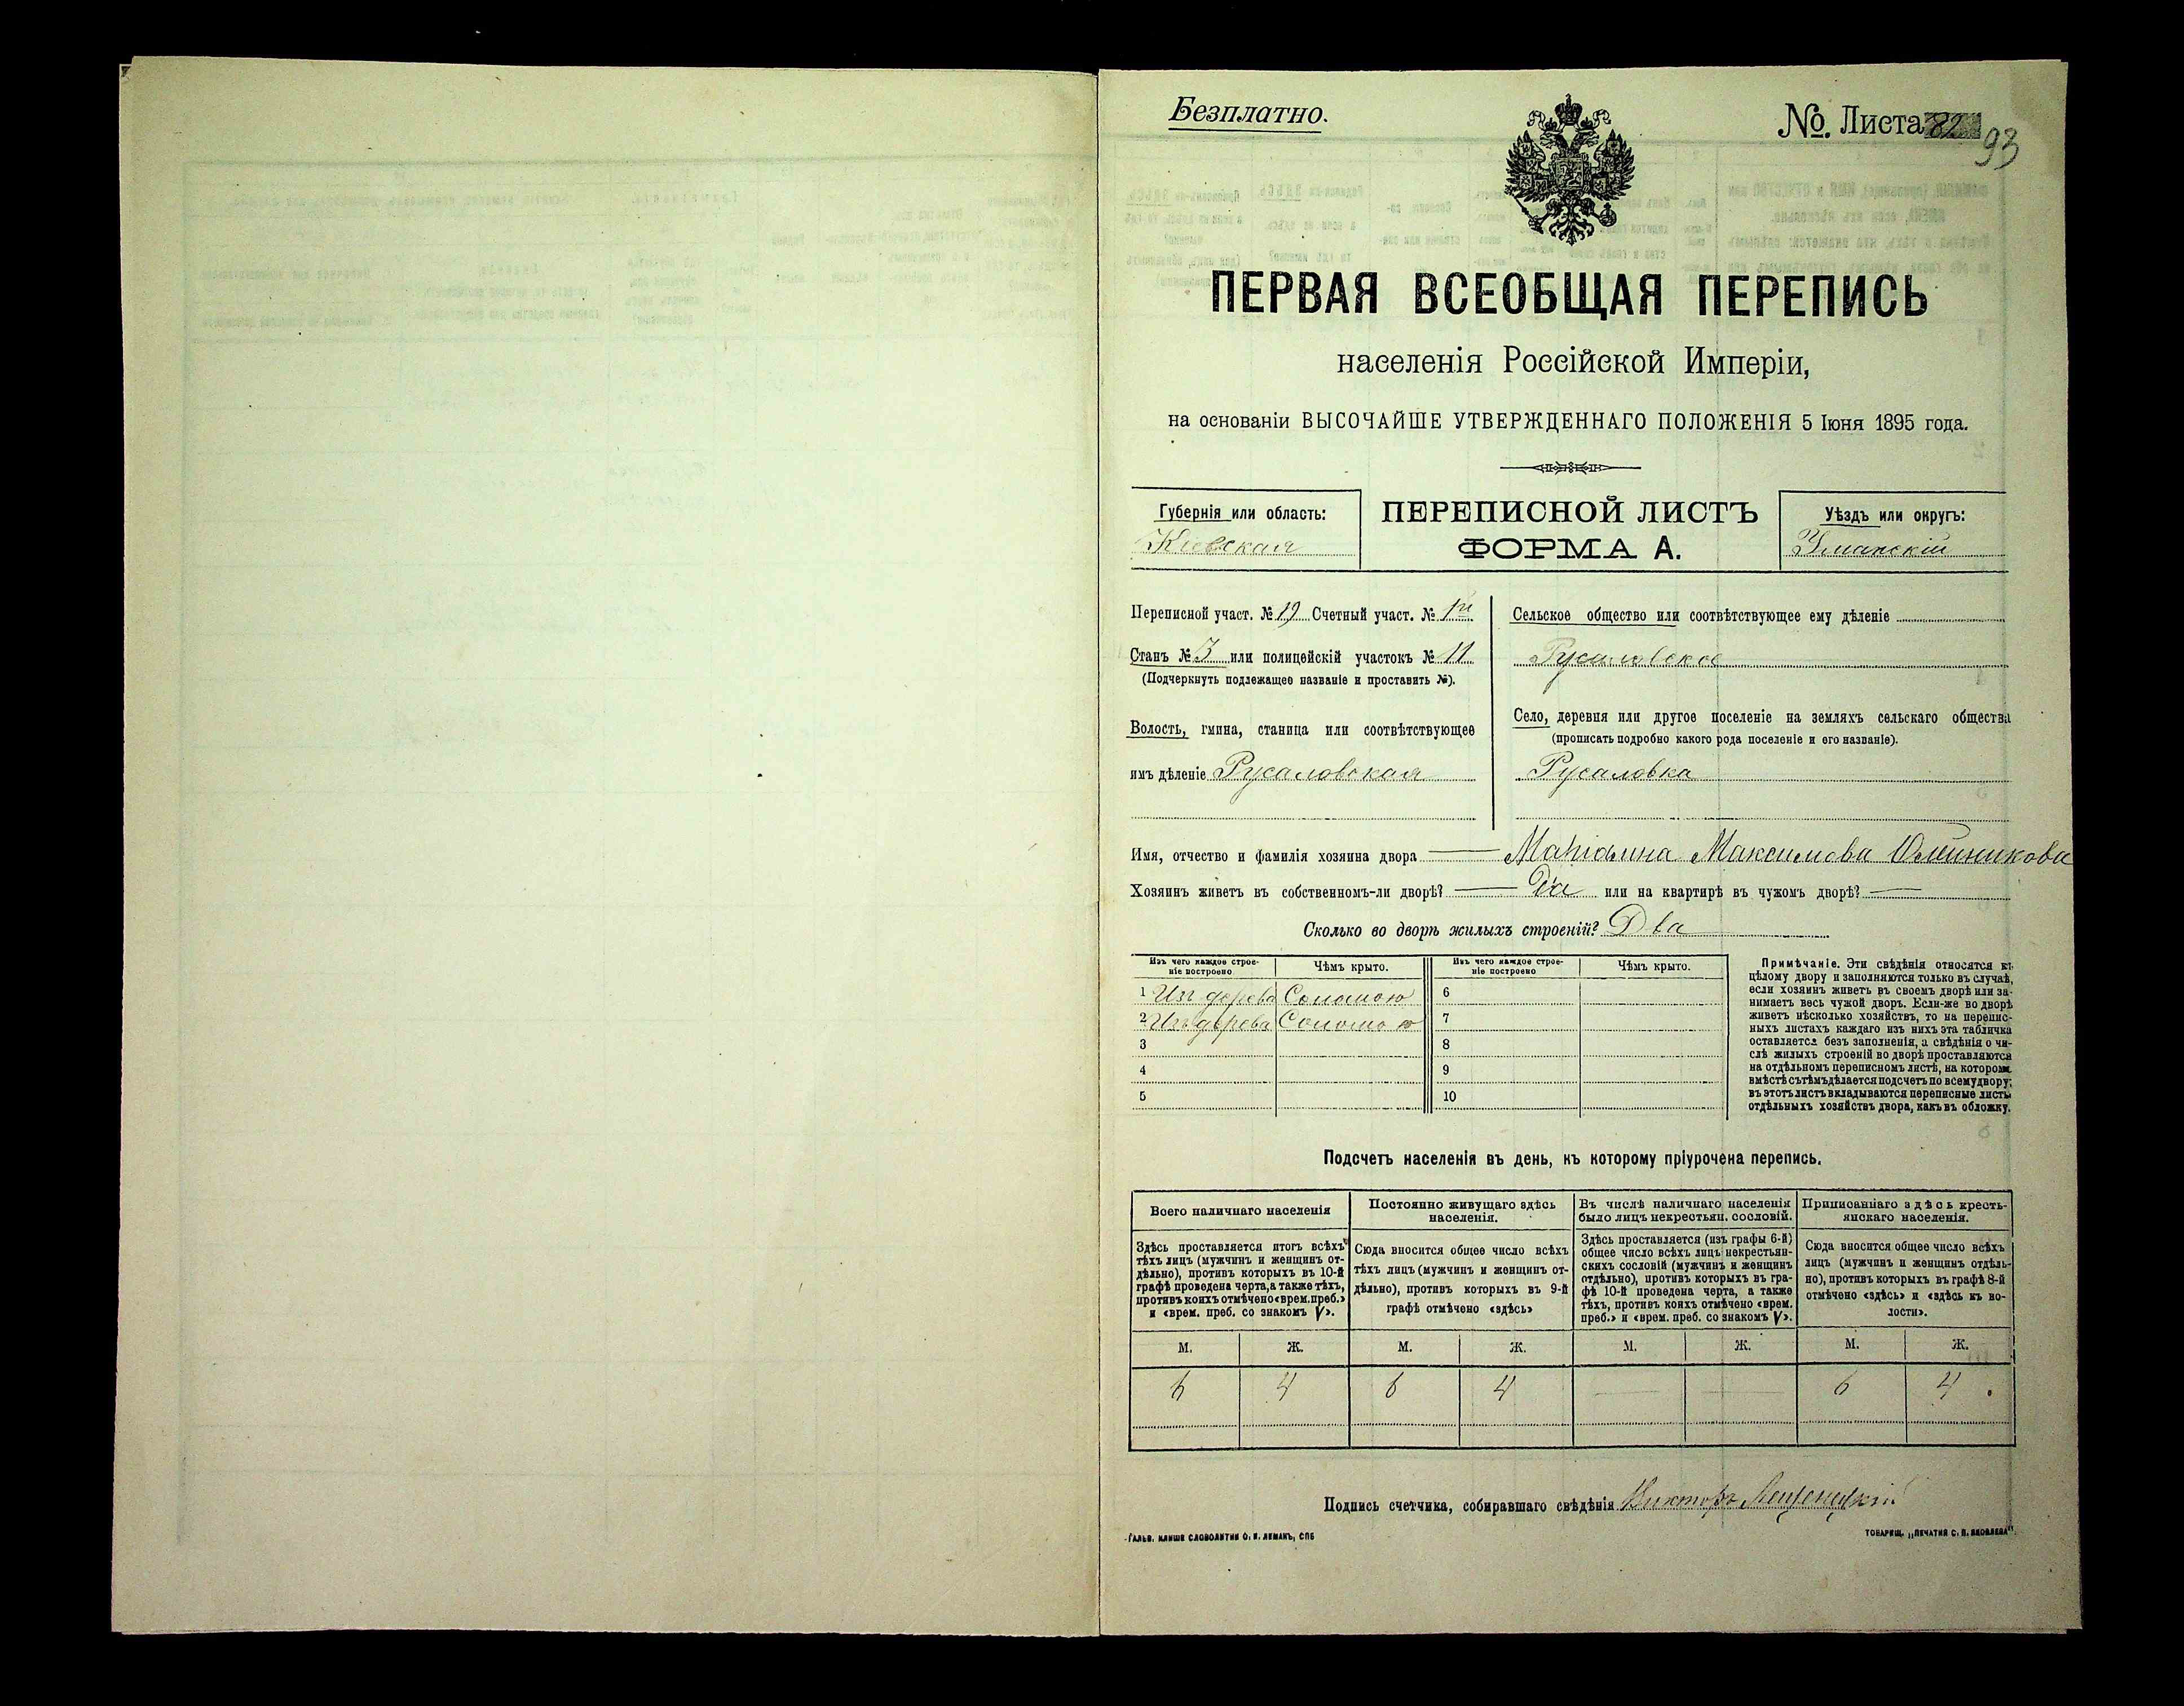 Безплатно.
№. Листа 82
93
ПЕРВАЯ ВСЕОБЩАЯ ПЕРЕПИСЬ
населенія Россійской Имперіи,
на основаніи ВЫСОЧАЙШЕ УТВЕРЖДЕННАГО ПОЛОЖЕНІЯ 5 Іюня 1895 года.
Губернія или область:
Кіевская
ПЕРЕПИСНОЙ ЛИСТЪ
ФОРМА А.
Уѣздъ или округъ:
Уманскій
Переписной участ. № 19 Счетный участ. № 1й
Станъ № 3 или полицейскій участокъ № 11
(Подчеркнуть подлежащее названіе и проставить №).
Волость, гмина, станица или соотвѣтствующее
имъ дѣленіе Русаловская
Сельское общество или соотвѣтствующее ему дѣленіе
Русаловское
Село, деревня или другое поселеніе на земляхъ сельскаго общества
(прописать подробно какого рода поселеніе и его названіе).
Русаловка
Имя, отчество и фамилія хозяина двора Маріанна Максимова Олейникова
Хозяинъ живетъ въ собственномъ-ли дворѣ? Да или на квартирѣ въ чужомъ дворѣ?
Сколько во дворѣ жилыхъ строеній? Два
Изъ чего каждое строе-
ніе построено
Чѣмъ крыто.
Изъ чего каждое строе-
ніе построено
Чѣмъ крыто.
1 Изъ дерева Соломою 6
2 Изъ дерева Соломою 7
3 8
4 9
5 10
Примѣчаніе. Эти свѣдѣнія относятся къ
цѣлому двору и заполняются только въ случаѣ,
если хозяинъ живетъ въ своемъ дворѣ или за-
нимаетъ весь чужой дворъ. Если-же во дворѣ
живетъ нѣсколько хозяйствъ, то на перепис-
ныхъ листахъ каждаго изъ нихъ эта табличка
оставляется безъ заполненія, а свѣдѣнія о чи-
слѣ жилыхъ строеній во дворѣ проставляются
на отдѣльномъ переписномъ листѣ, на которомъ
вмѣстѣ съ тѣмъ дѣлается подсчетъ по всему двору;
въ этотъ листъ вкладываются переписные листы
отдѣльныхъ хозяйствъ двора, какъ въ обложку.
Подсчетъ населенія въ день, къ которому пріурочена перепись.
Всего наличнаго населенія
Здѣсь проставляется итогъ всѣхъ
тѣхъ лицъ (мужчинъ и женщинъ от-
дѣльно), противъ которыхъ въ 10-й
графѣ проведена черта, а также тѣхъ,
противъ коихъ отмѣчено «врем. преб.»
и «врем. преб. со знакомъ V».
Постоянно живущаго здѣсь
населенія.
Сюда вносится общее число всѣхъ
тѣхъ лицъ (мужчинъ и женщинъ от-
дѣльно), противъ которыхъ въ 9-й
графѣ отмѣчено «здѣсь»
Въ числѣ наличнаго населенія
было лицъ некрестьян. сословій.
Здѣсь проставляется (изъ графы 6-й)
общее число всѣхъ лицъ некрестьян-
скихъ сословій (мужчинъ и женщинъ
отдѣльно), противъ которыхъ въ гра-
фѣ 10-й проведена черта, а также
тѣхъ, противъ коихъ отмѣчено «врем.
преб.» и «врем. преб. со знакомъ V».
Приписаннаго здѣсь кресть-
янскаго населенія.
Сюда вносится общее число всѣхъ
лицъ (мужчинъ и женщинъ отдѣль-
но), противъ которыхъ въ графѣ 8-й
отмѣчено «здѣсь» и «здѣсь къ во-
лости».
М. Ж. М. Ж. М. Ж. М. Ж.
6 4 6 4 — — 6 4
Подпись счетчика, собиравшаго свѣдѣнія Викторъ
ГАЛЬВ. КЛИШЕ СЛОВОЛИТНИ О. И. ЛЕМАНЪ, СПБ
ТОВАРИЩ. „ПЕЧАТНЯ С. П. ЯКОВЛЕВА".